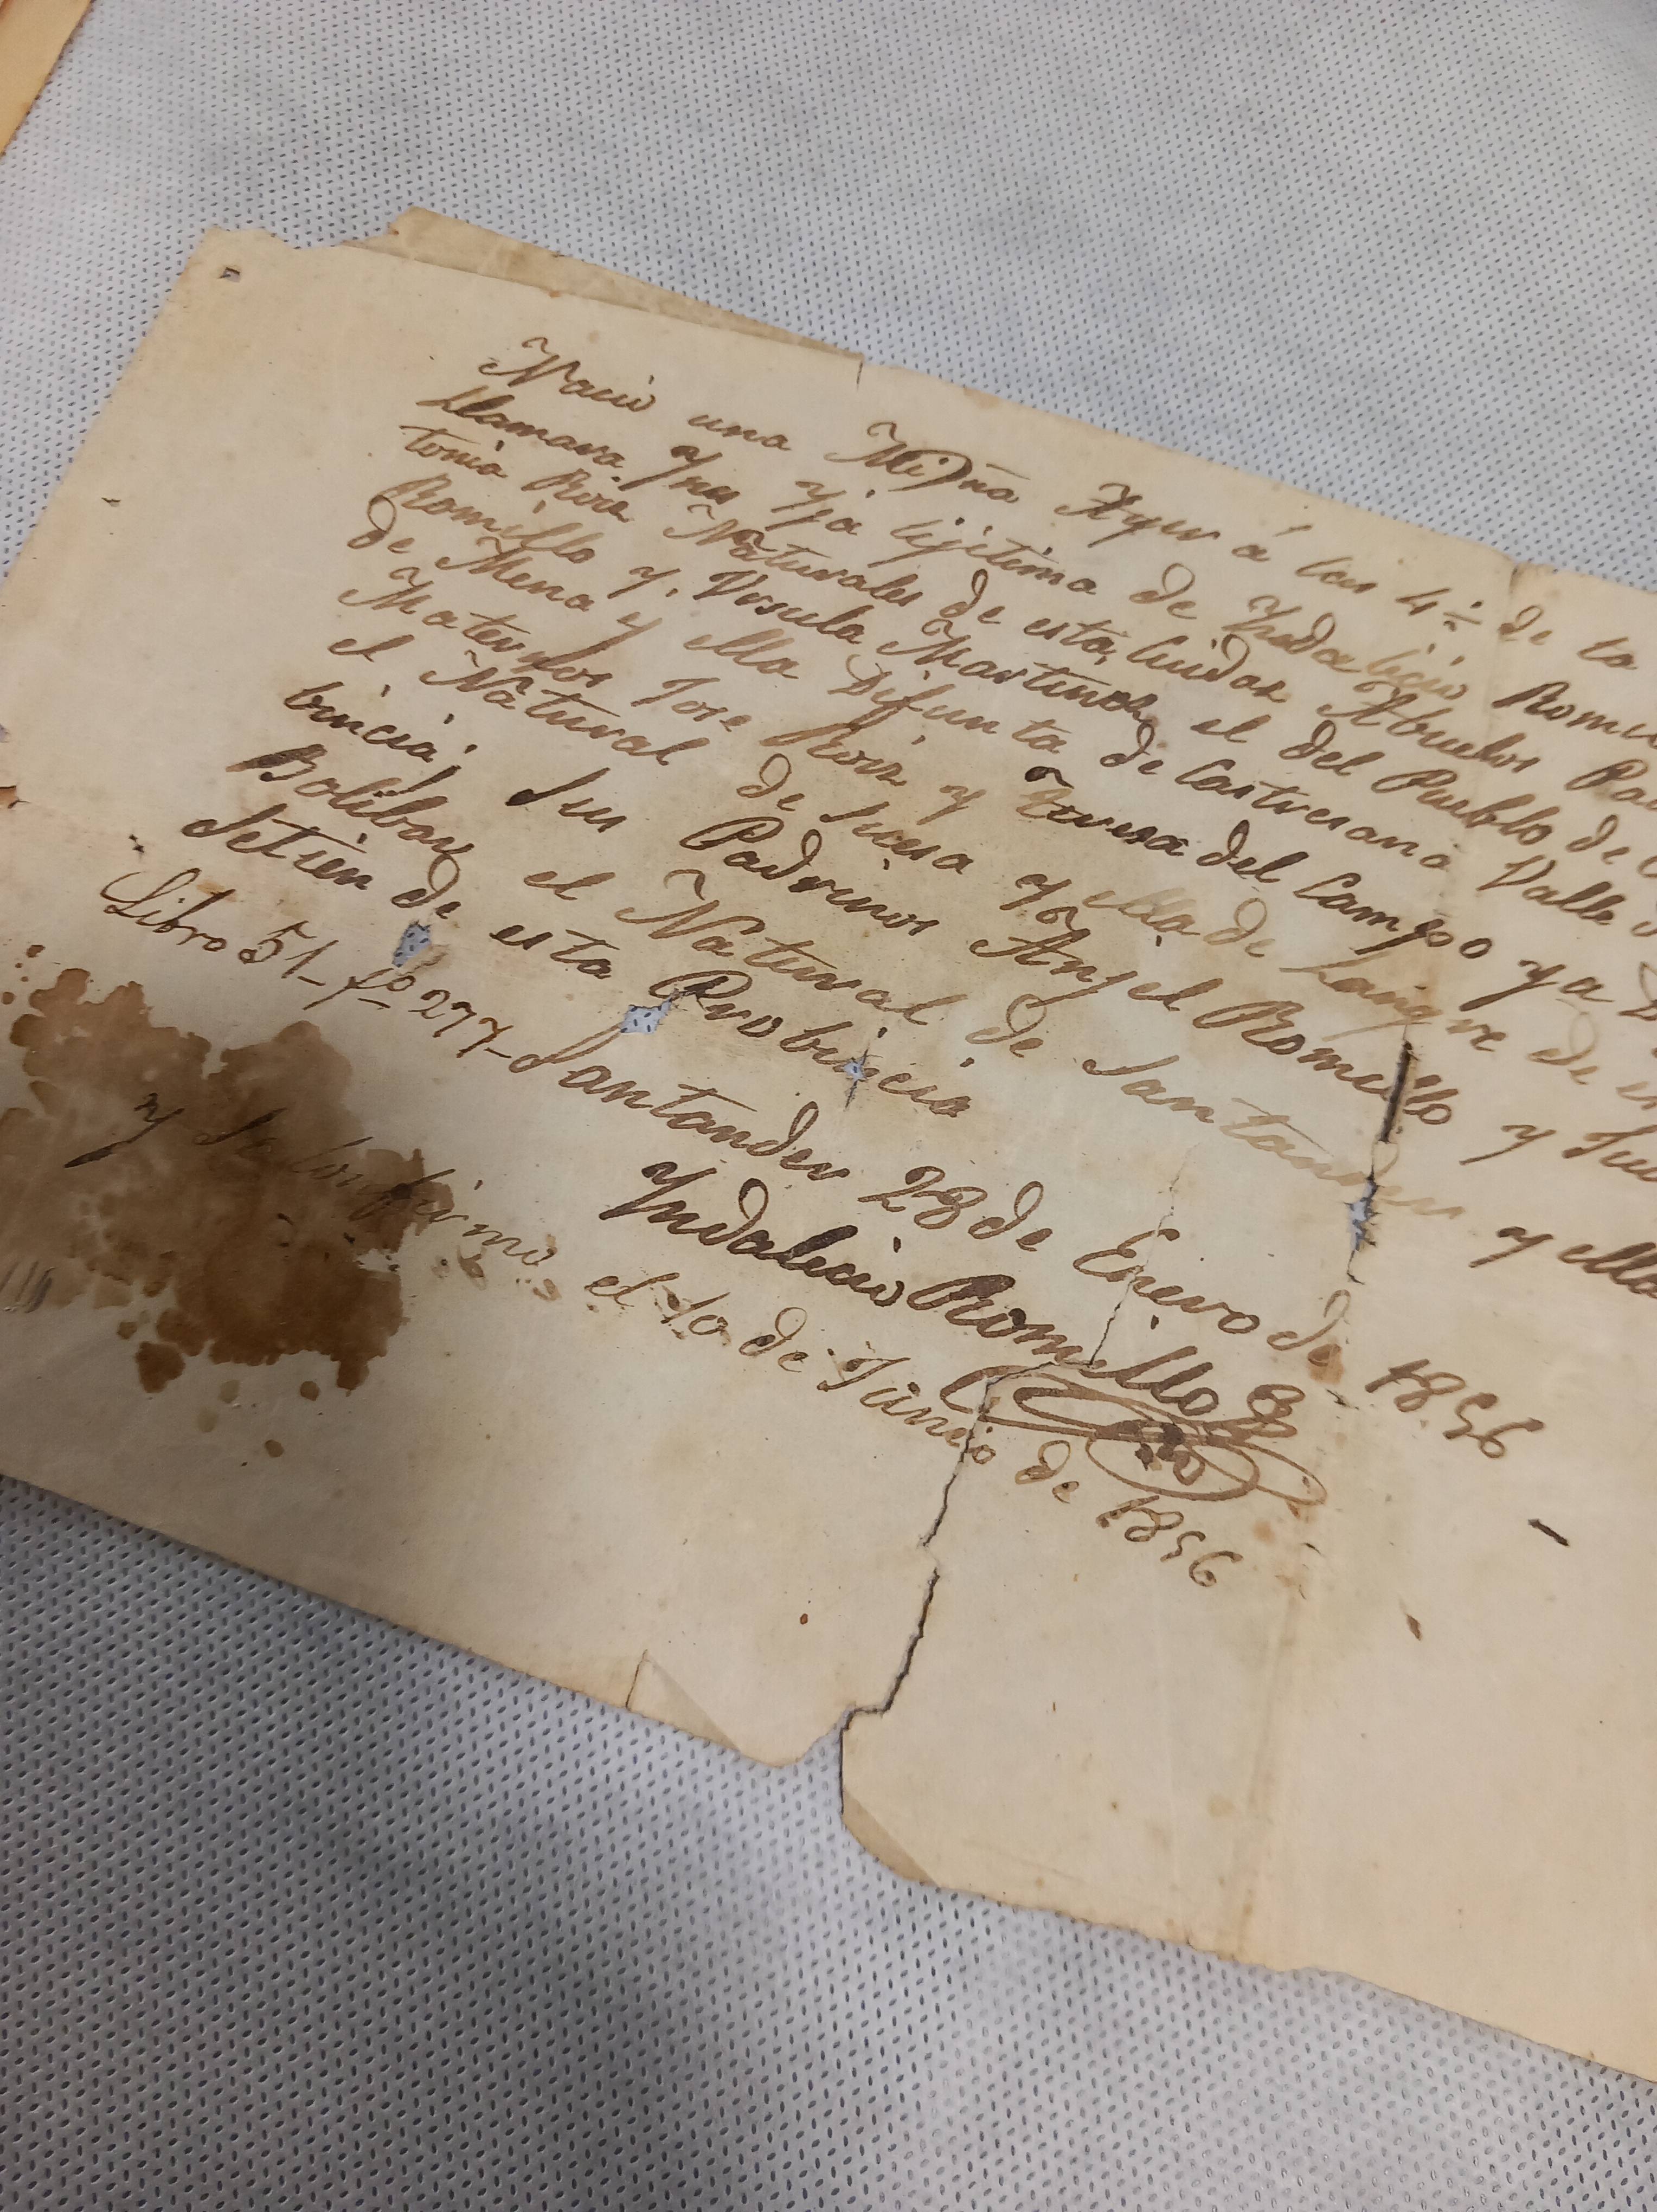 Nacio una Niña Ayer á las 4 ½ de la
Llamara Ynes Yja lijitima de Yndalicio Rome
tonia Roiz Naturales de esta Ciudad Abuelos Pa
Romillo y Ursula Martinez el del Pueblo de
de Mena y ella Difunta de Castresana Valle
Maternos Jose Roiz y Teresa del Campo ya
el Natural de y ella de Langre de es
bincia; Sus Padrinos Anjel Romillo y
Bolibar el Natural de Santander y ella
Setien de esta Probincia
Libro 51 fo 277 Santander 28 de Enero de 1856
Yndalecio Romillo
y Se Confirmo el 10 de Junio de 1856